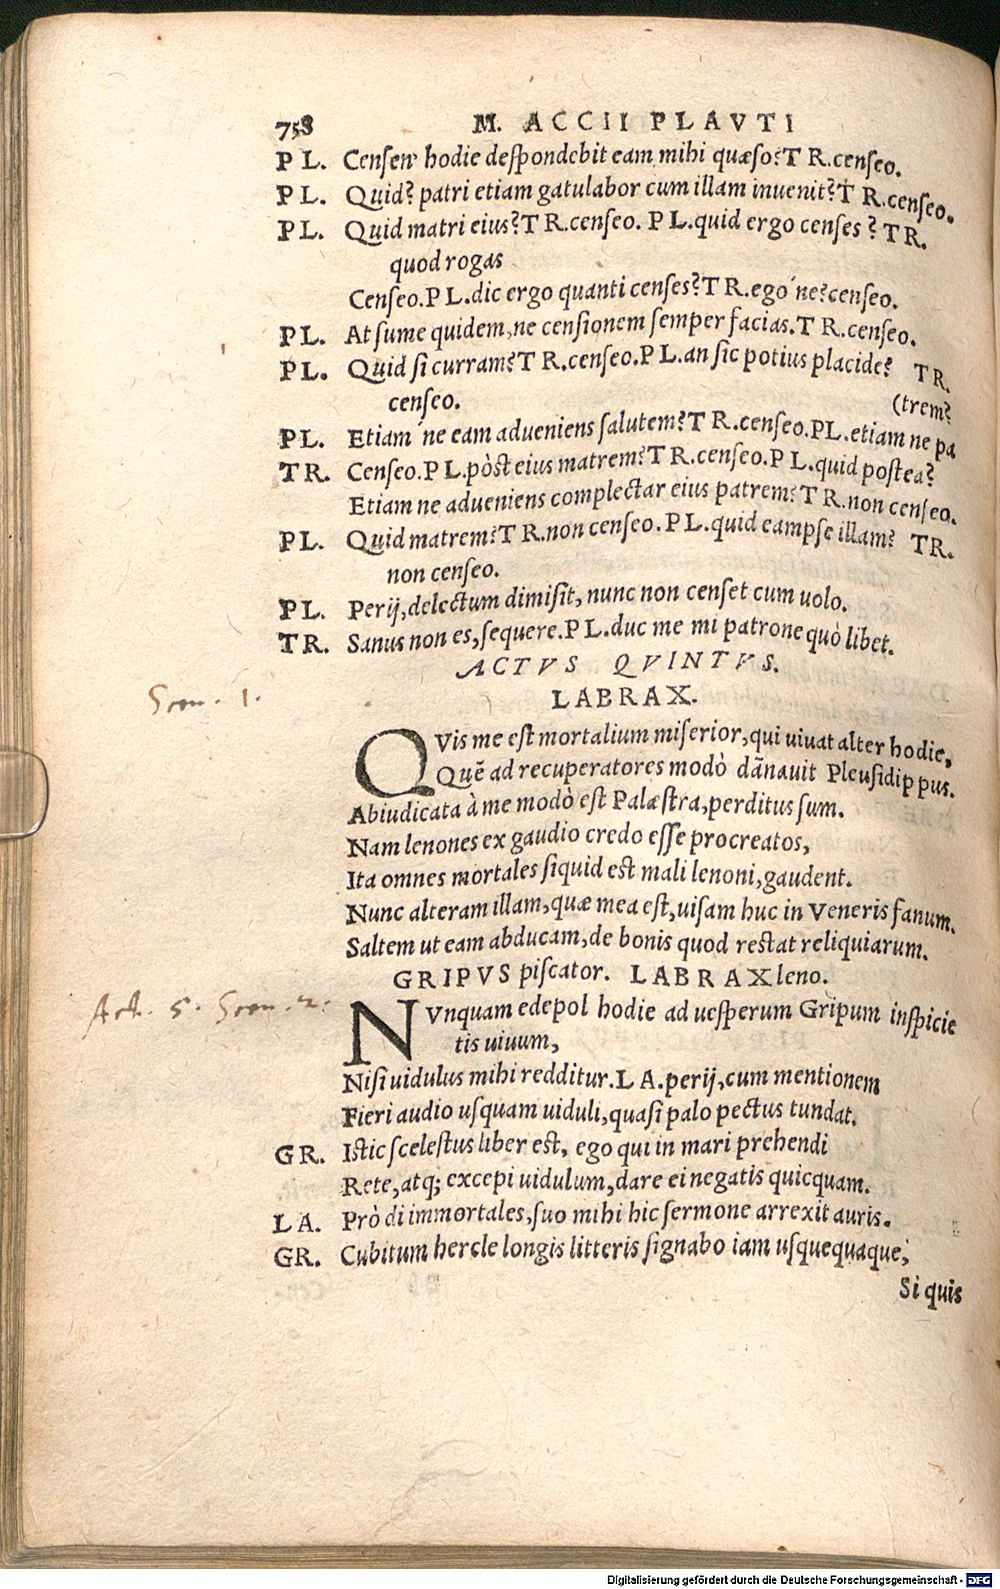 758 M. ACCII PLAVTI
PL. Censen' hodie despondebit eam mihi quæso? TR. censeo.
PL. Quid? patri etiam gatulabor cum illam inuenit? TR. censeo.
PL. Quid matri eius? TR. censeo. PL. quid ergo censes? TR.
quod rogas
Censeo. PL. dic ergo quanti censes? TR. ego'ne? censeo.
PL. At sume quidem, ne censionem semper facias. TR. censeo.
PL. Quid si curram? TR. censeo. PL. an sic potius placide? TR.
censeo. (trem?
PL. Etiam'ne eam adueniens salutem? TR. censeo. PL. etiam ne pa
TR. Censeo. PL. pòst eius matrem? TR. censeo. PL. quid postea?
Etiam ne adueniens complectar eius patrem? TR. non censeo.
PL. Quid matrem? TR. non censeo. PL. quid eampse illam? TR.
non censeo.
PL. Perij, delectum dimisit, nunc non censet cum uolo.
TR. Sanus non es, sequere. PL. duc me mi patrone quò libet.
ACTVS QVINTVS.
Scen. 1.
LABRAX.
QVis me est mortalium miserior, qui uiuat alter hodie,
Quẽ ad recuperatores modò dãnauit Pleusidippus.
Abiudicata à me modò est Palæstra, perditus sum.
Nam lenones ex gaudio credo esse procreatos,
Ita omnes mortales siquid est mali lenoni, gaudent.
Nunc alteram illam, quæ mea est, uisam huc in Veneris fanum.
Saltem ut eam abducam, de bonis quod restat reliquiarum.
GRIPVS piscator. LABRAX leno.
Act. 5. Scen. 2.
NVnquam edepol hodie ad uesperum Gripum inspicie
tis uiuum,
Nisi uidulus mihi redditur. LA. perij, cum mentionem
Fieri audio usquam uiduli, quasi palo pectus tundat.
GR. Istic scelestus liber est, ego qui in mari prehendi
Rete, atq; excepi uidulum, dare ei negatis quicquam.
LA. Prò di immortales, suo mihi hic sermone arrexit auris.
GR. Cubitum hercle longis litteris signabo iam usquequaque,
Si quis
Digitalisierung gefördert durch die Deutsche Forschungsgemeinschaft - DFG